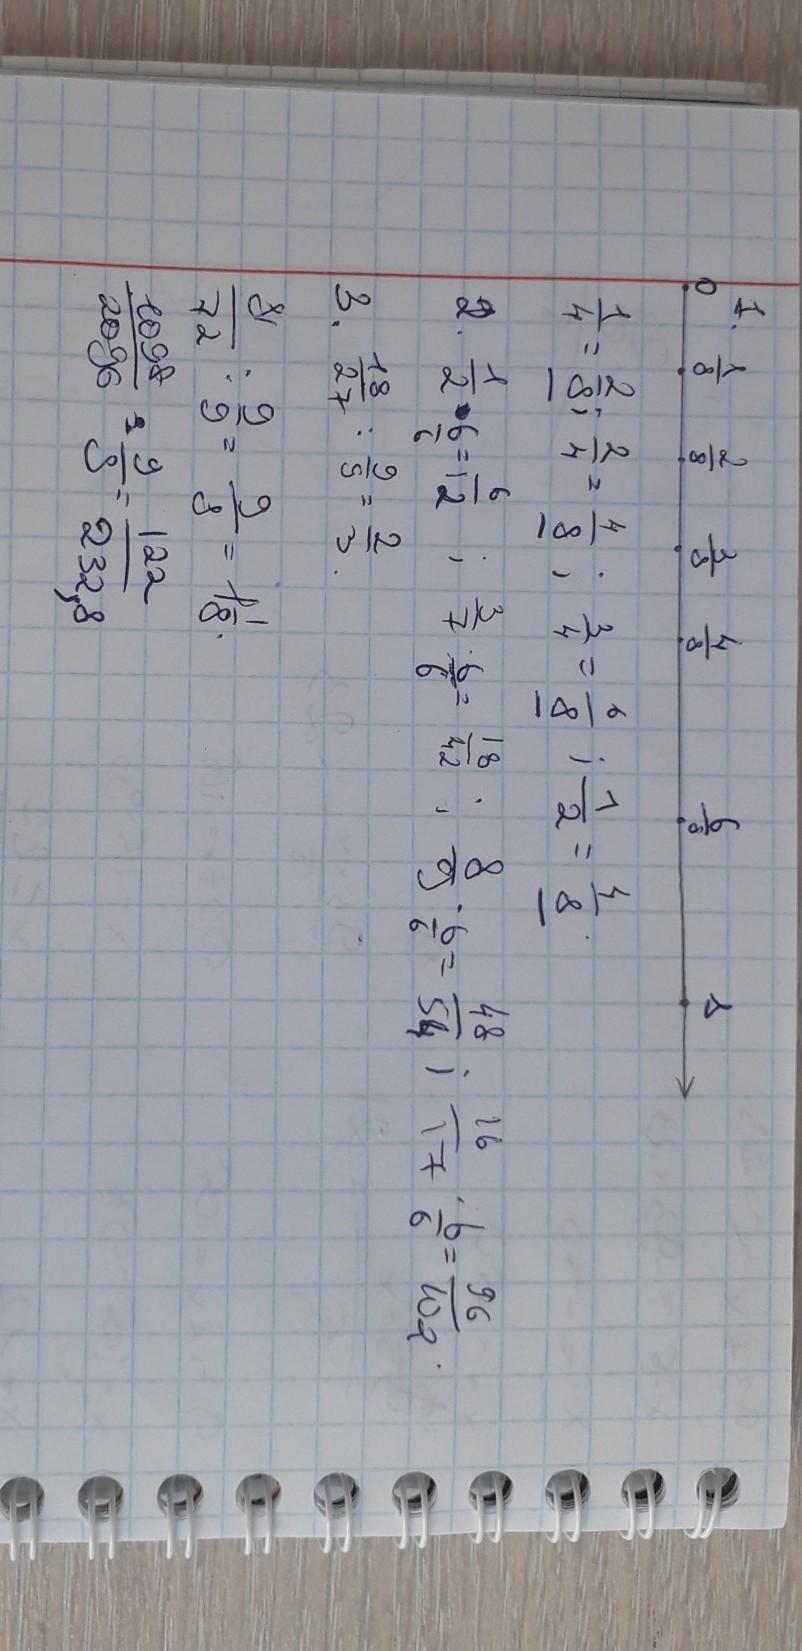 1.
0 1/8 2/8 3/8 4/8 6/8 1
1/4 = 2/8; 2/4 = 4/8; 3/4 = 6/8; 1/2 = 4/8.
2. 1/2 · 6/6 = 6/12; 3/7 · 6/6 = 18/42; 8/9 · 6/6 = 48/54; 16/17 · 6/6 = 96/102.
3. 18/27 : 9/ = 2/3.
/72 : 9/9 = 9/
1098/2096 9/9 = 122/232,8